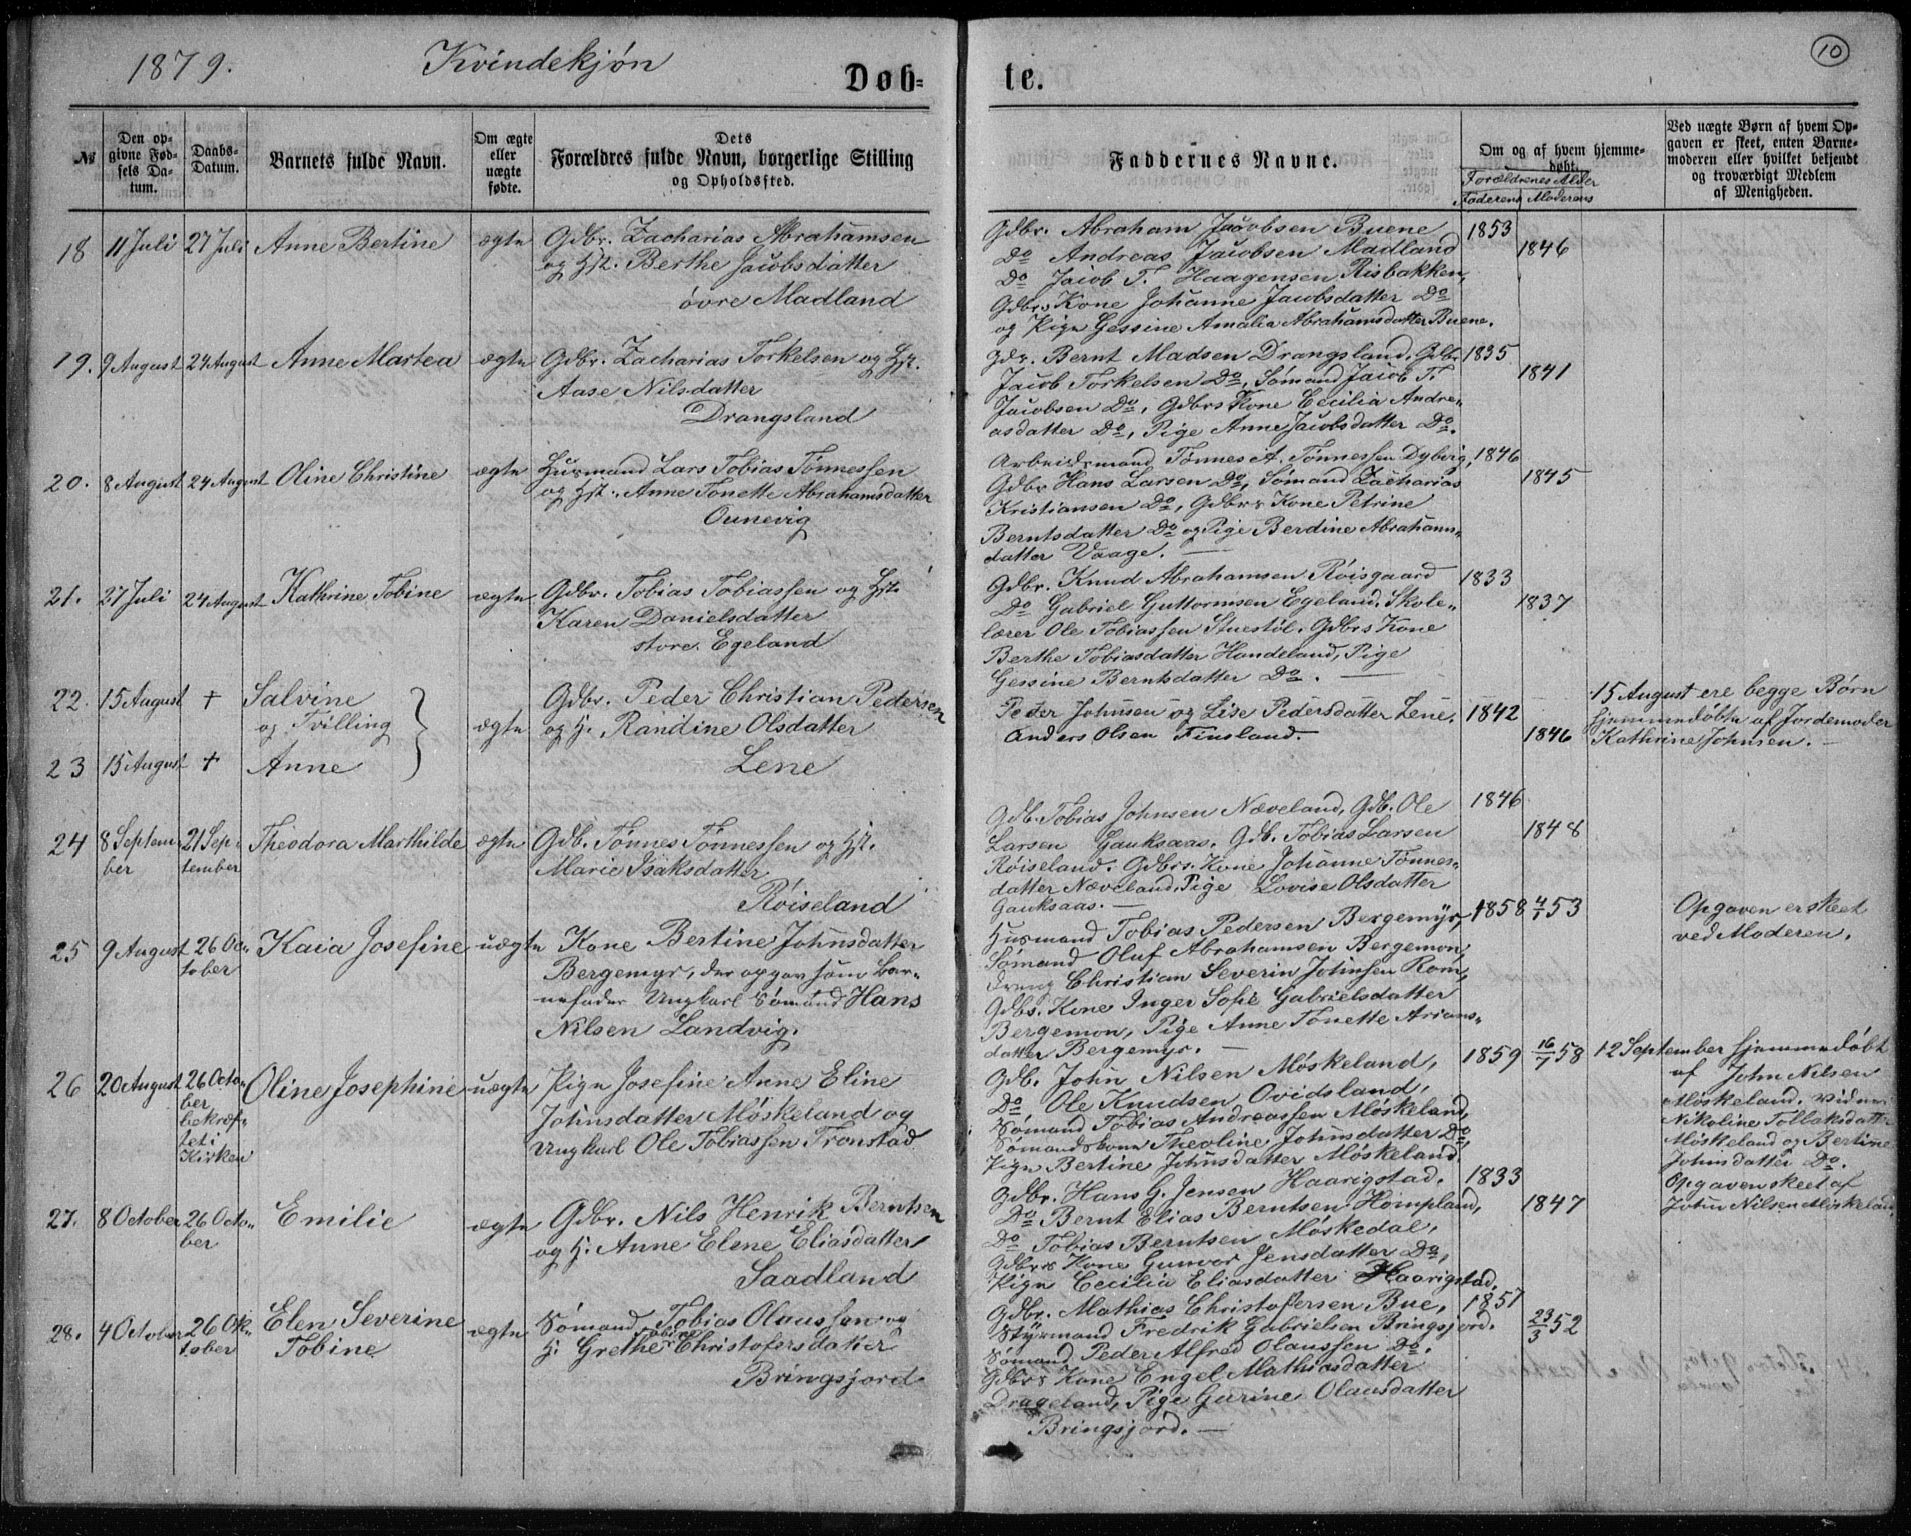 1879.
Kvindekjøn
Døb-
te.
10
№
Den op-
givne Fød-
sels Da-
tum.
Daabs-
Datum.
Barnets fulde Navn.
Om ægte
eller
uægte
fødte.
Dets
Forældres fulde Navn, borgerlige Stilling
og Opholdssted.
Faddernes Navne.
Om og af hvem hjemme-
døbt.
Forældrenes Alder
Faderens Moderens
Ved uægte Børn af hvem Op-
gaven er skeet, enten Barne-
moderen eller hvilket bekjendt
og troværdigt Medlem
af Menigheden.
18 11 Juli 27 Juli Anne Bertine ægte
Gdbr. Zacharias Abrahamsen
og Hst. Berthe Jacobsdatter
øvre Madland
Gdbr. Abraham Jacobsen Buene
Do Andreas Jacobsen Madland
Do Jacob T. Haagensen Risbakken,
Gdbrs Kone Johanne Jacobsdatter Do
og Pige Gessine Amalia Abrahamsdatter Buene.
1853
1846
19. 9 August 24 August Anne Martea ægte
Gdbr. Zacharias Torkelsen og Hst.
Aase Nilsdatter
Drangsland
Gdr. Bernt Madsen Drangsland. Gdbr
Jacob Torkelsen Do, Sømand Jacob T.
Jacobsen Do, Gdbrs Kone Cecilia Andre-
asdatter Do, Pige Anne Jacobsdatter Do.
1835
1841
20. 8 August 24 August Oline Christine ægte
Husmand Lars Tobias Tønnessen
og Hst. Anne Tonette Abrahamsdatter
Ounevig
Arbeidsmand Tønnes A. Tønnessen Dybvig,
Gdbr Hans Larsen Do, Sømand Zacharias
Kristiansen Do, Gdbrs Kone Petrine
Berntsdatter Do og Pige Berdine Abrahams-
datter Vaage.
1846
1845
21. 27 Juli 24 August Kathrine Tobine ægte
Gdbr. Tobias Tobiassen og Hst.
Karen Danielsdatter
store Egeland
Gdbr. Knud Abrahamsen Røisgaard
Do Gabriel Guttormsen Egeland, Skole-
lærer Ole Tobiassen Stuestøl, Gdbrs Kone
Berthe Tobiasdatter Handeland, Pige
Gessine Berntsdatter Do.
1833
1837
22. 15 August + Salvine
og Tvilling
ægte
23 15 August + Anne
Gdbr. Peder Christian Pedersen
og H. Randine Olsdatter
Lene
Peder Johnsen og Lise Pedersdatter Lene.
Anders Olsen Finsland.
1842
1846
15 August ere begge Børn
hjemmedøbte af Jordemoder
Kathrine Johnsen.
24 8 Septem-
ber
21 Sep-
tember
Theodora Marthilde ægte
Gdb. Tønnes Tønnessen og Hst.
Marie Isaksdatter
Røiseland
Gdb. Tobias Johnsen Næveland, Gdb. Ole
Larsen Gauksaas. Gdb. Tobias Larsen
Røiseland. Gdbrs. Kone Johanne Tønnes-
datter Næveland, Pige Lovise Olsdatter
Gauksaas.
1846
1848
25 9 August 26 Oc-
tober
Kaia Josefine uægte
Kone Bertine Johnsdatter
Bergemyr, der opgav som Bar-
nefader Ungkarl Sømand Hans
Nilsen Landvig.
Husmand Tobias Pedersen Bergemyr,
Sømand Oluf Abrahamsen Bergemon,
Dreng Christian Severin Johnsen Rom,
Gdbs. Kone Inger Sofie Gabrielsdatter
Bergemon, Pige Anne Tonette Arians-
datter Bergemyr.
1858 4/1 53
Opgaven er skeet
ved Moderen.
26 20 August 26 Octo-
ber
bekræf-
tet i
Kirken
Oline Josephine uægte
Pige Josefine Anne Eline
Johnsdatter Møskeland og
Ungkarl Ole Tobiassen Tronstad
Gdb. John Nilsen Møskeland,
Do Ole Knudsen Ovidsland,
Sømand Tobias Andreassen Møskeland,
Sømandskone Theoline Johnsdatter Do,
Pige Bertine Johnsdatter Møskeland.
1859 16/7 58
12 September hjemmedøbt
af John Nilsen
Møskeland. Vidner
Nikoline Tollaksdatter
Møskeland og Bertine
Johnsdatter Do.
Opgaven skeet af
John Nilsen Møskeland.
27. 8 October 26 Octo-
ber
Emilie ægte
Gdbr. Nils Henrik Berntsen
og H. Anne Elene Eliasdatter
Saadland
Gdbr. Hans G. Jensen Haarigstad.
Do Bernt Elias Berntsen Hompland,
Do Tobias Berntsen Møskedal,
Gdbrs Kone Gunvor Jensdatter Do,
Pige Cecilia Eliasdatter Haarigstad.
1833
1847
28. 4 October 26 Ok-
tober
Elen Severine
Tobine
ægte
Sømand Tobias Olaussen og
H. Grethe Tobine Christofersdatter
Bringsjord
Gdbr. Mathias Christofersen Bue,
Styrmand Fredrik Gabrielsen Bringsjord.
Sømand Peder Alfred Olaussen Do.
Gdbrs Kone Engel Mathiasdatter
Drageland, Pige Gurine Olausdatter
Bringsjord.
1857
23/3 52